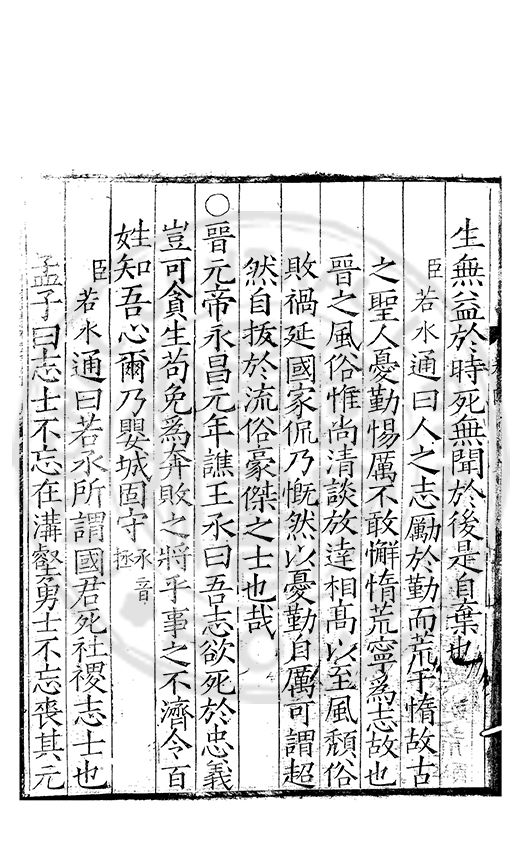 生無益於時死無聞於後是自棄也
臣若水通曰人之志勵於勤而荒于惰故古
之聖人憂勤惕厲不敢懈惰荒寧爲志故也
晉之風俗惟尚清談放逹相髙以至風頽俗
敗禍延國家侃乃慨然以憂勤自厲可謂超
然自拔於流俗豪傑之士也哉
○晉元帝永昌元年譙王氶曰吾志欲死於忠義
豈可貪生苟免爲奔敗之將乎事之不濟令百
姓知吾心爾乃嬰城固守氶音拯
臣若水通曰若氶所謂國君死社稷志士也
孟子曰志士不忘在溝壑勇士不忘喪其元